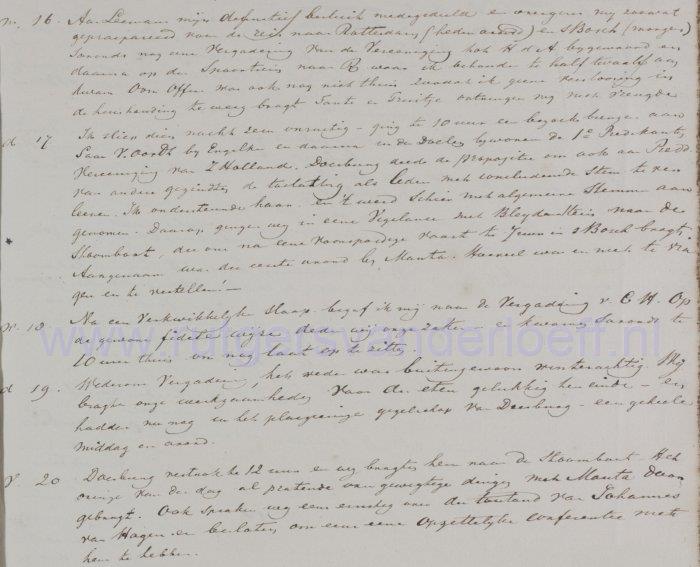 m. 16. Aan Leeman mijn definitief besluit medegedeeld en overigens mij zoowat
gepraepareerd van de reis naar Rotterdam (heden avond) en 's Bosch (morgen)
Savonds nog eene Vergadering van de Vereeniging bijgewoond en
daarna op den Spoortrein naar R waar ik behouden te half twaalf aan
kwam Oom Offer was ook nog niet thuis zoodat ik geene verstooring in
de huishouding te weeg bragt Tante en ontvingen mij met vreugde
d 17 Ik sliep dien nacht zeer onrustig - ging te 10 uur een bezoek brengen aan
V. Oordt bij Engelken en daarna in de Doelen bijwonen de 1e Predikants
Vereeniging van Z Holland. Doesburg deed de propositie om ook aan Predd.
van andere gezindten de toelating als leden met concludeerende Stem te ver
leenen. Ik ondersteunde haar en 't werd schier met algemeene stemmen aan
genomen. Daarop gingen wij in eene Vigelante met naar de
Stoomboot, die ons na eene voorspoedige vaart te 7 uur in s Bosch bragt.
Aangenaam was die eerste avond bij Manta. Hoeveel was er niet te vra
gen en te vertellen!
W. 18 Na een verkwikkelijke slaap begaf ik mij naar de Vergadering v. C. H. Op
de gewone fidele wijze deden wij onze zaken en kwamen savonds te
10 uur thuis om nog laat op te zitten.
d 19. Wederom Vergadering, het weder was buitengewoon winterachtig. Wij
bragten onze werkzaamheden voor den eten gelukkig ten einde - en
hadden nu nog in het pleizierige gezelschap van Doesburg - een geheelen
middag en avond.
V. 20 Doesburg vertrok te 12 uur en wij bragten hem naar de Stoomboot Het
overige van den dag al pratende van gewigtige dingen met Manta door
gebragt. Ook spraken wij eens ernstig over den toestand van Johannes
van Hagen en besloten om eens eene opzettelijke conferentie met
hem te hebben.
www.rutgersvanderloeff.nl